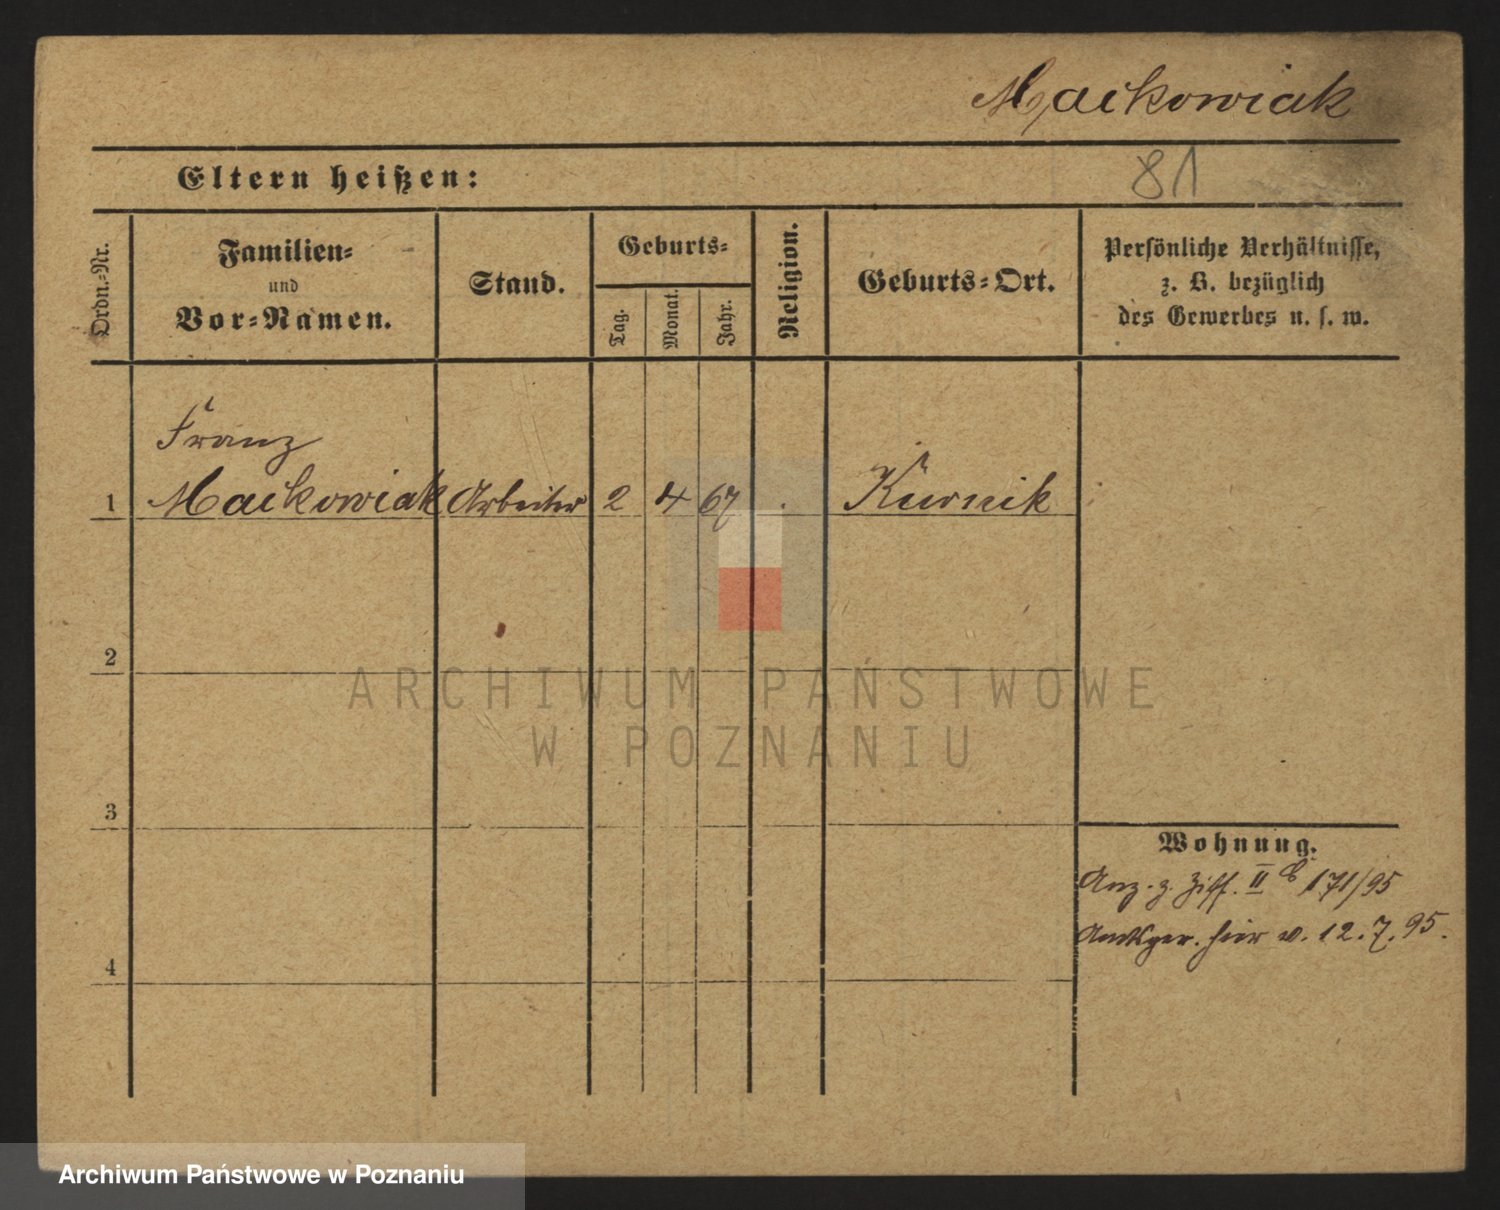 Mackowiak
81
Eltern heißen:
Ordn.-Nr.
Familien-
und
Vor-Namen.
Stand.
Geburts-
Tag.
Monat.
Jahr.
Religion.
Geburts-Ort.
Persönliche Verhältnisse,
z. B. bezüglich
des Gewerbes u. s. w.
Franz
1 Mackowiak Arbeiter 2 4 67 Kurnik
2
ARCHIWUM PAŃSTWOWE
W POZNANIU
3
Wohnung.
Anz. z. Ziff. II b 171/95
Amtsger. hier v. 12.7.95.
4
Archiwum Państwowe w Poznaniu